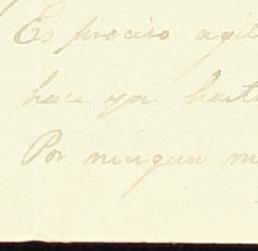 Es preciso agit
hace ya hart
Por ningun m